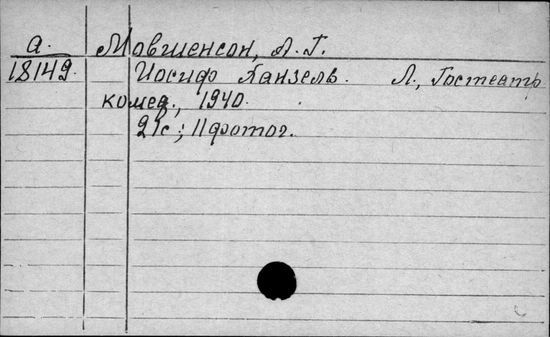 а. Мовшенсон, А. Г.
18149. Иосиф Ханзель. Л., Гостеатр
комед., 1940.
21с; 11 фотог.